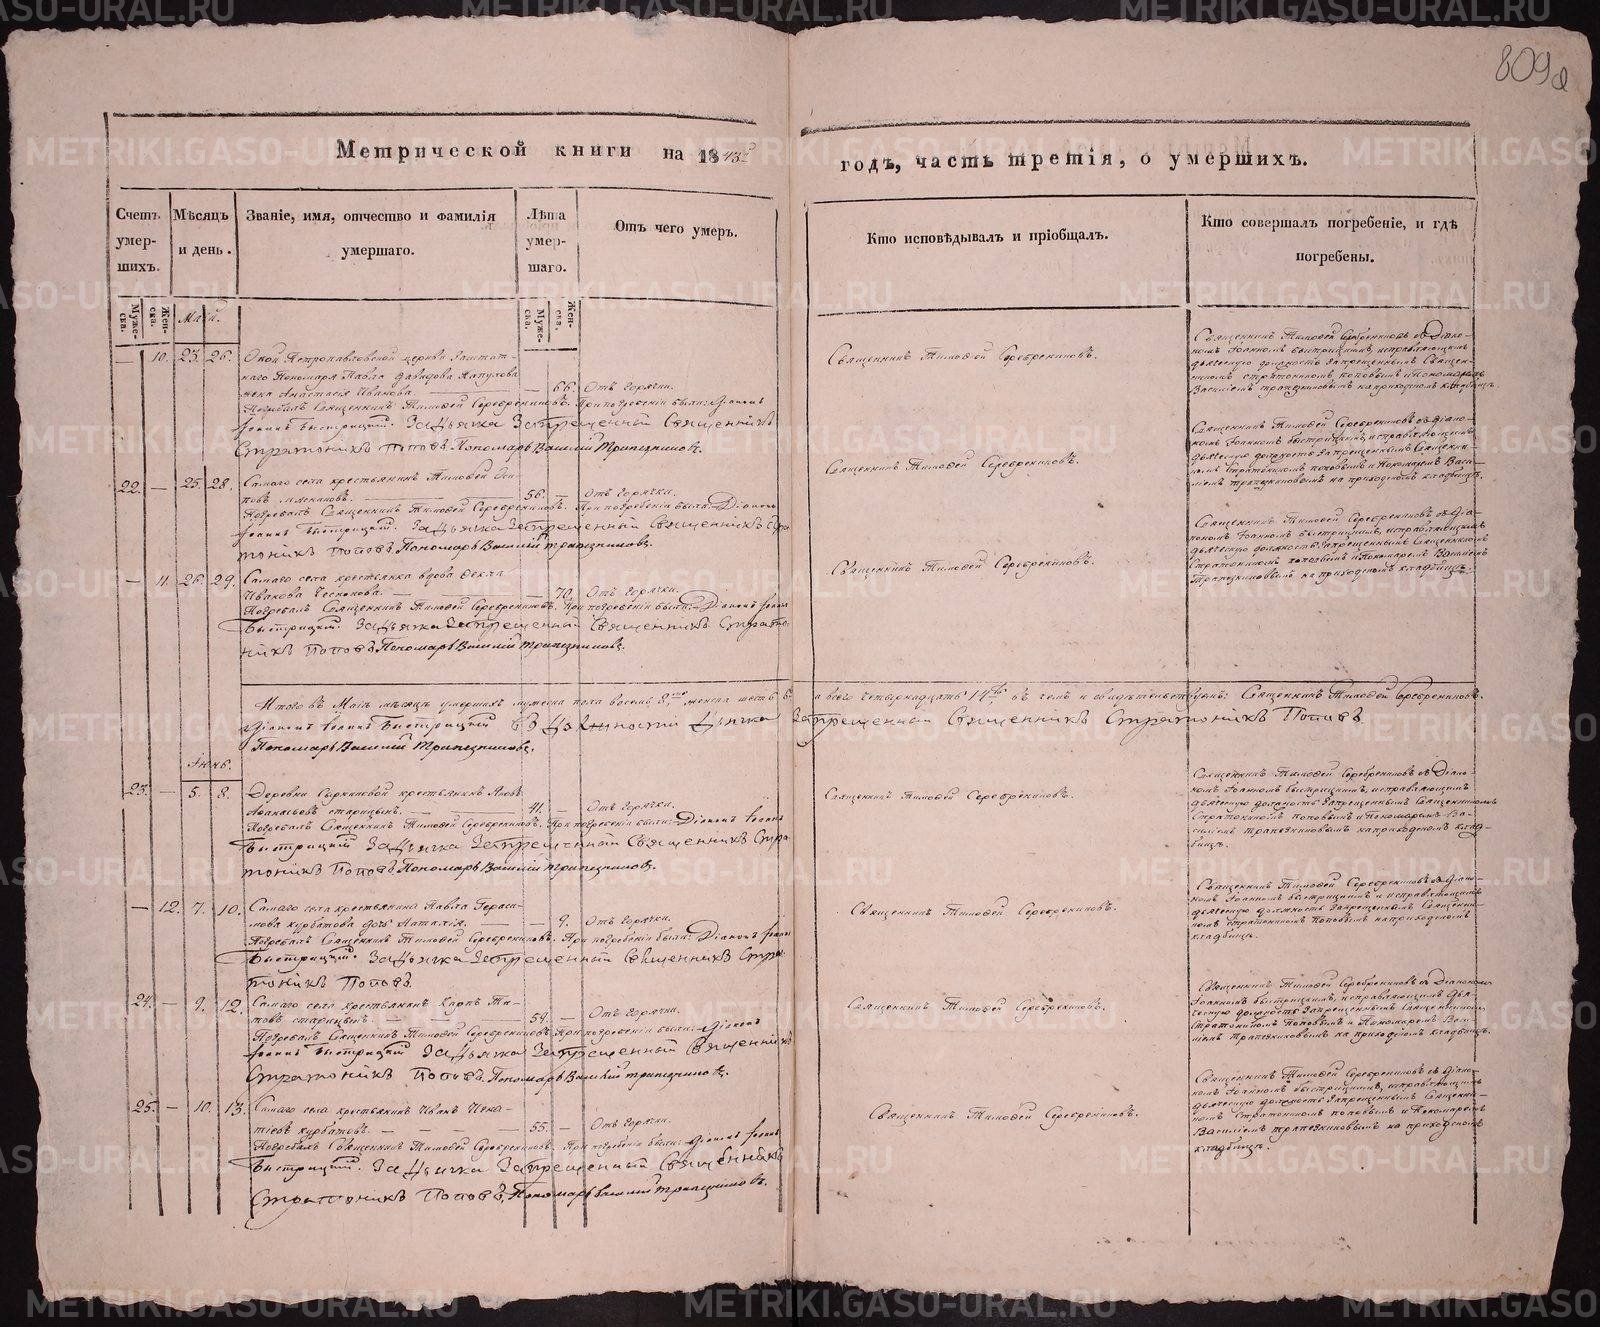 809
Метрической книги на 1843й годъ, часть третія, о умершихъ.
Счетъ умер- шихъ.
Мѣсяцъ и день.
Званіе, имя, отчество и фамилія умершаго.
Лѣта умер- шаго.
Отъ чего умеръ.
Кто исповѣдывалъ и пріобщалъ.
Кто совершалъ погребеніе, и гдѣ погребены.
Муже- ска.
Жен- ска.
Маій.
Муже- ска.
Жен- ска.
— 10. 23. 26. Петропавловской церкви Заштат-
наго Пономаря Павла Давидова
жена Анастасія Иванова. — 66. Отъ горячки.
Погребалъ Священникъ Тимофей Серебрениковъ. При погребеніи были: Діаконъ
Іоаннъ Быстрицкій. За Дьячка Запрещенный Священникъ
Стратоникъ Поповъ. Пономарь Василій Трапезниковъ.
Священникъ Тимофей Серебрениковъ.
Священникъ Тимофей Серебрениковъ съ Діако-
номъ Іоанномъ Быстрицкимъ, исправляющимъ
дьяческую должность Запрещеннымъ Священ-
никомъ Стратоникомъ Поповымъ и Пономаремъ
Василіемъ Трапезниковымъ на приходскомъ кладбищѣ.
22. — 25. 28. Самаго села крестьянинъ Тимофей Оси-
повъ — 56. — Отъ горячки.
Погребалъ Священникъ Тимофей Серебрениковъ. При погребеніи были: Діаконъ
Іоаннъ Быстрицкій. За Дьячка Запрещенный Священникъ Стра-
тоникъ Поповъ. Пономарь Василій Трапезниковъ.
Священникъ Тимофей Серебрениковъ.
Священникъ Тимофей Серебрениковъ съ Діако-
номъ Іоанномъ Быстрицкимъ, исправляющимъ
дьяческую должность Запрещеннымъ Священни-
комъ Стратоникомъ Поповымъ и Пономаремъ Васи-
ліемъ Трапезниковымъ на приходскомъ кладбищѣ.
— 11. 26. 29. Самаго села крестьянка вдова Фекла
Иванова — 70. Отъ горячки.
Погребалъ Священникъ Тимофей Серебрениковъ. При погребеніи были: Діаконъ Іоаннъ
Быстрицкій. За Дьячка Запрещенный Священникъ Страто-
никъ Поповъ. Пономарь Василій Трапезниковъ.
Священникъ Тимофей Серебрениковъ.
Священникъ Тимофей Серебрениковъ съ Діа-
кономъ Іоанномъ Быстрицкимъ, исправляющимъ
дьяческую должность Запрещеннымъ Священникомъ
Стратоникомъ Поповымъ и Пономаремъ Василіемъ
Трапезниковымъ на приходскомъ кладбищѣ.
Итого въ Маіѣ мѣсяцѣ умершихъ мужеска пола восемь 8, женска шесть 6. а всего четырнадцать 14. въ чемъ и свидѣтельствуемъ: Священникъ Тимофей Серебрениковъ.
Діаконъ Іоаннъ Быстрицкій въ Должности Дьячка Запрещенный Священникъ Стратоникъ Поповъ.
Пономарь Василій Трапезниковъ.
Іюнь.
23. — 5. 8. Деревни крестьянинъ Яковъ
Аѳанасьевъ Старицынъ. — 41. — Отъ горячки.
Погребалъ Священникъ Тимофей Серебрениковъ. При погребеніи были: Діаконъ Іоаннъ
Быстрицкій За Дьячка Запрещенный Священникъ Стра-
тоникъ Поповъ. Пономарь Василій Трапезниковъ.
Священникъ Тимофей Серебрениковъ.
Священникъ Тимофей Серебрениковъ съ Діако-
номъ Іоанномъ Быстрицкимъ, исправляющимъ
дьяческую должность Запрещеннымъ Священникомъ
Стратоникомъ Поповымъ и Пономаремъ Ва-
силіемъ Трапезниковымъ на приходскомъ клад-
бищѣ.
— 12. 7. 10. Самаго села крестьянина Павла Гераси-
мова Курбатова дочь Наталія. — 9. Отъ горячки.
Погребалъ Священникъ Тимофей Серебрениковъ. При погребеніи были: Діаконъ Іоаннъ
Быстрицкій. За Дьячка Запрещенный Священникъ Стра-
тоникъ Поповъ.
Священникъ Тимофей Серебрениковъ.
Священникъ Тимофей Серебрениковъ съ Діако-
номъ Іоанномъ Быстрицкимъ и исправляющимъ
дьяческую должность Запрещеннымъ Священни-
комъ Стратоникомъ Поповымъ на приходскомъ
кладбищѣ.
24. — 9. 12. Самаго села крестьянинъ Карпъ
Старицынъ. — 54. — Отъ горячки.
Погребалъ Священникъ Тимофей Серебрениковъ. При погребеніи были: Діаконъ
Іоаннъ Быстрицкій За Дьячка Запрещенный Священникъ
Стратоникъ Поповъ. Пономарь Василій Трапезниковъ.
Священникъ Тимофей Серебрениковъ.
Священникъ Тимофей Серебрениковъ съ Діакономъ
Іоанномъ Быстрицкимъ, исправляющимъ дья-
ческую должность Запрещеннымъ Священникомъ
Стратоникомъ Поповымъ и Пономаремъ Васи-
ліемъ Трапезниковымъ на приходскомъ кладбищѣ.
25. — 10. 13. Самаго села крестьянинъ Иванъ
Курбатовъ. — 55. — Отъ горячки.
Погребалъ Священникъ Тимофей Серебрениковъ. При погребеніи были: Діаконъ Іоаннъ
Быстрицкій. За Дьячка Запрещенный Священникъ
Стратоникъ Поповъ. Пономарь Василій Трапезниковъ.
Священникъ Тимофей Серебрениковъ.
Священникъ Тимофей Серебрениковъ съ Діако-
номъ Іоанномъ Быстрицкимъ, исправляющимъ
дьяческую должность Запрещеннымъ Священни-
комъ Стратоникомъ Поповымъ и Пономаремъ
Василіемъ Трапезниковымъ на приходскомъ
кладбищѣ.
METRIKI.GASO-URAL.RU